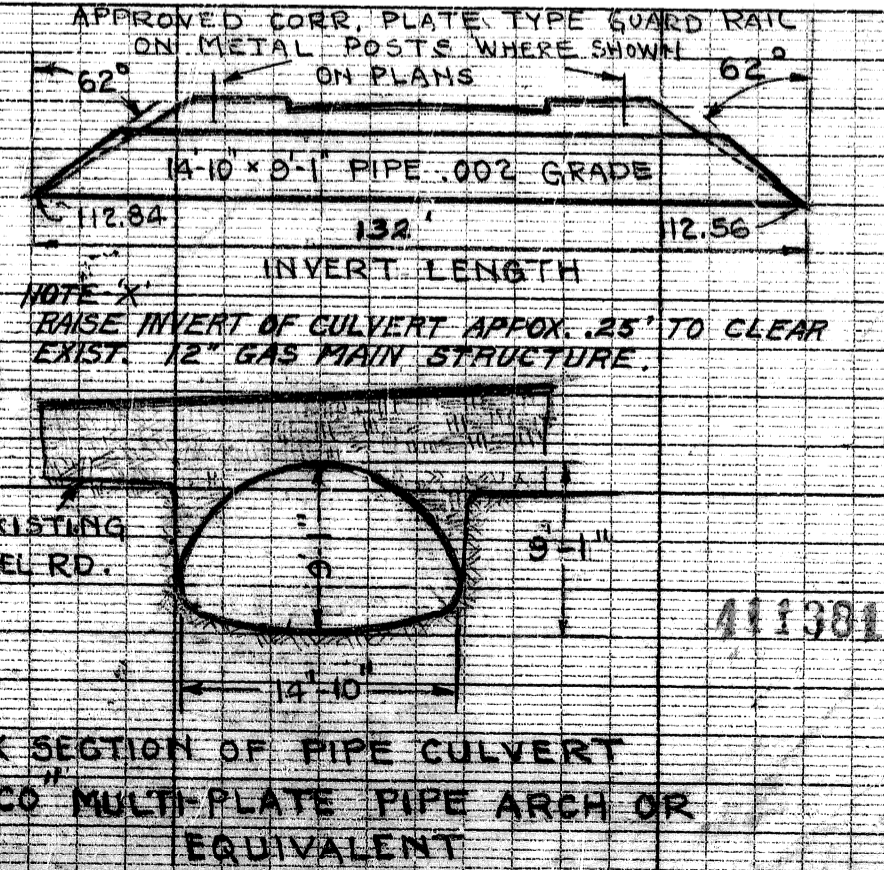 APPROVED CORR. PLATE TYPE GUARD RAIL
ON METAL POSTS WHERE SHOWN
ON PLANS
62°
62°
14'-10" x 9'-1" PIPE .002 GRADE
112.84
132'
112.56
INVERT LENGTH
NOTE 'X'
RAISE INVERT OF CULVERT APPOX. .25' TO CLEAR
EXIST. 12" GAS MAIN STRUCTURE.
XISTING
EL RD.
9'-1"
9'-1"
411381
14'-10"
X SECTION OF PIPE CULVERT
CO" MULTI-PLATE PIPE ARCH OR
EQUIVALENT